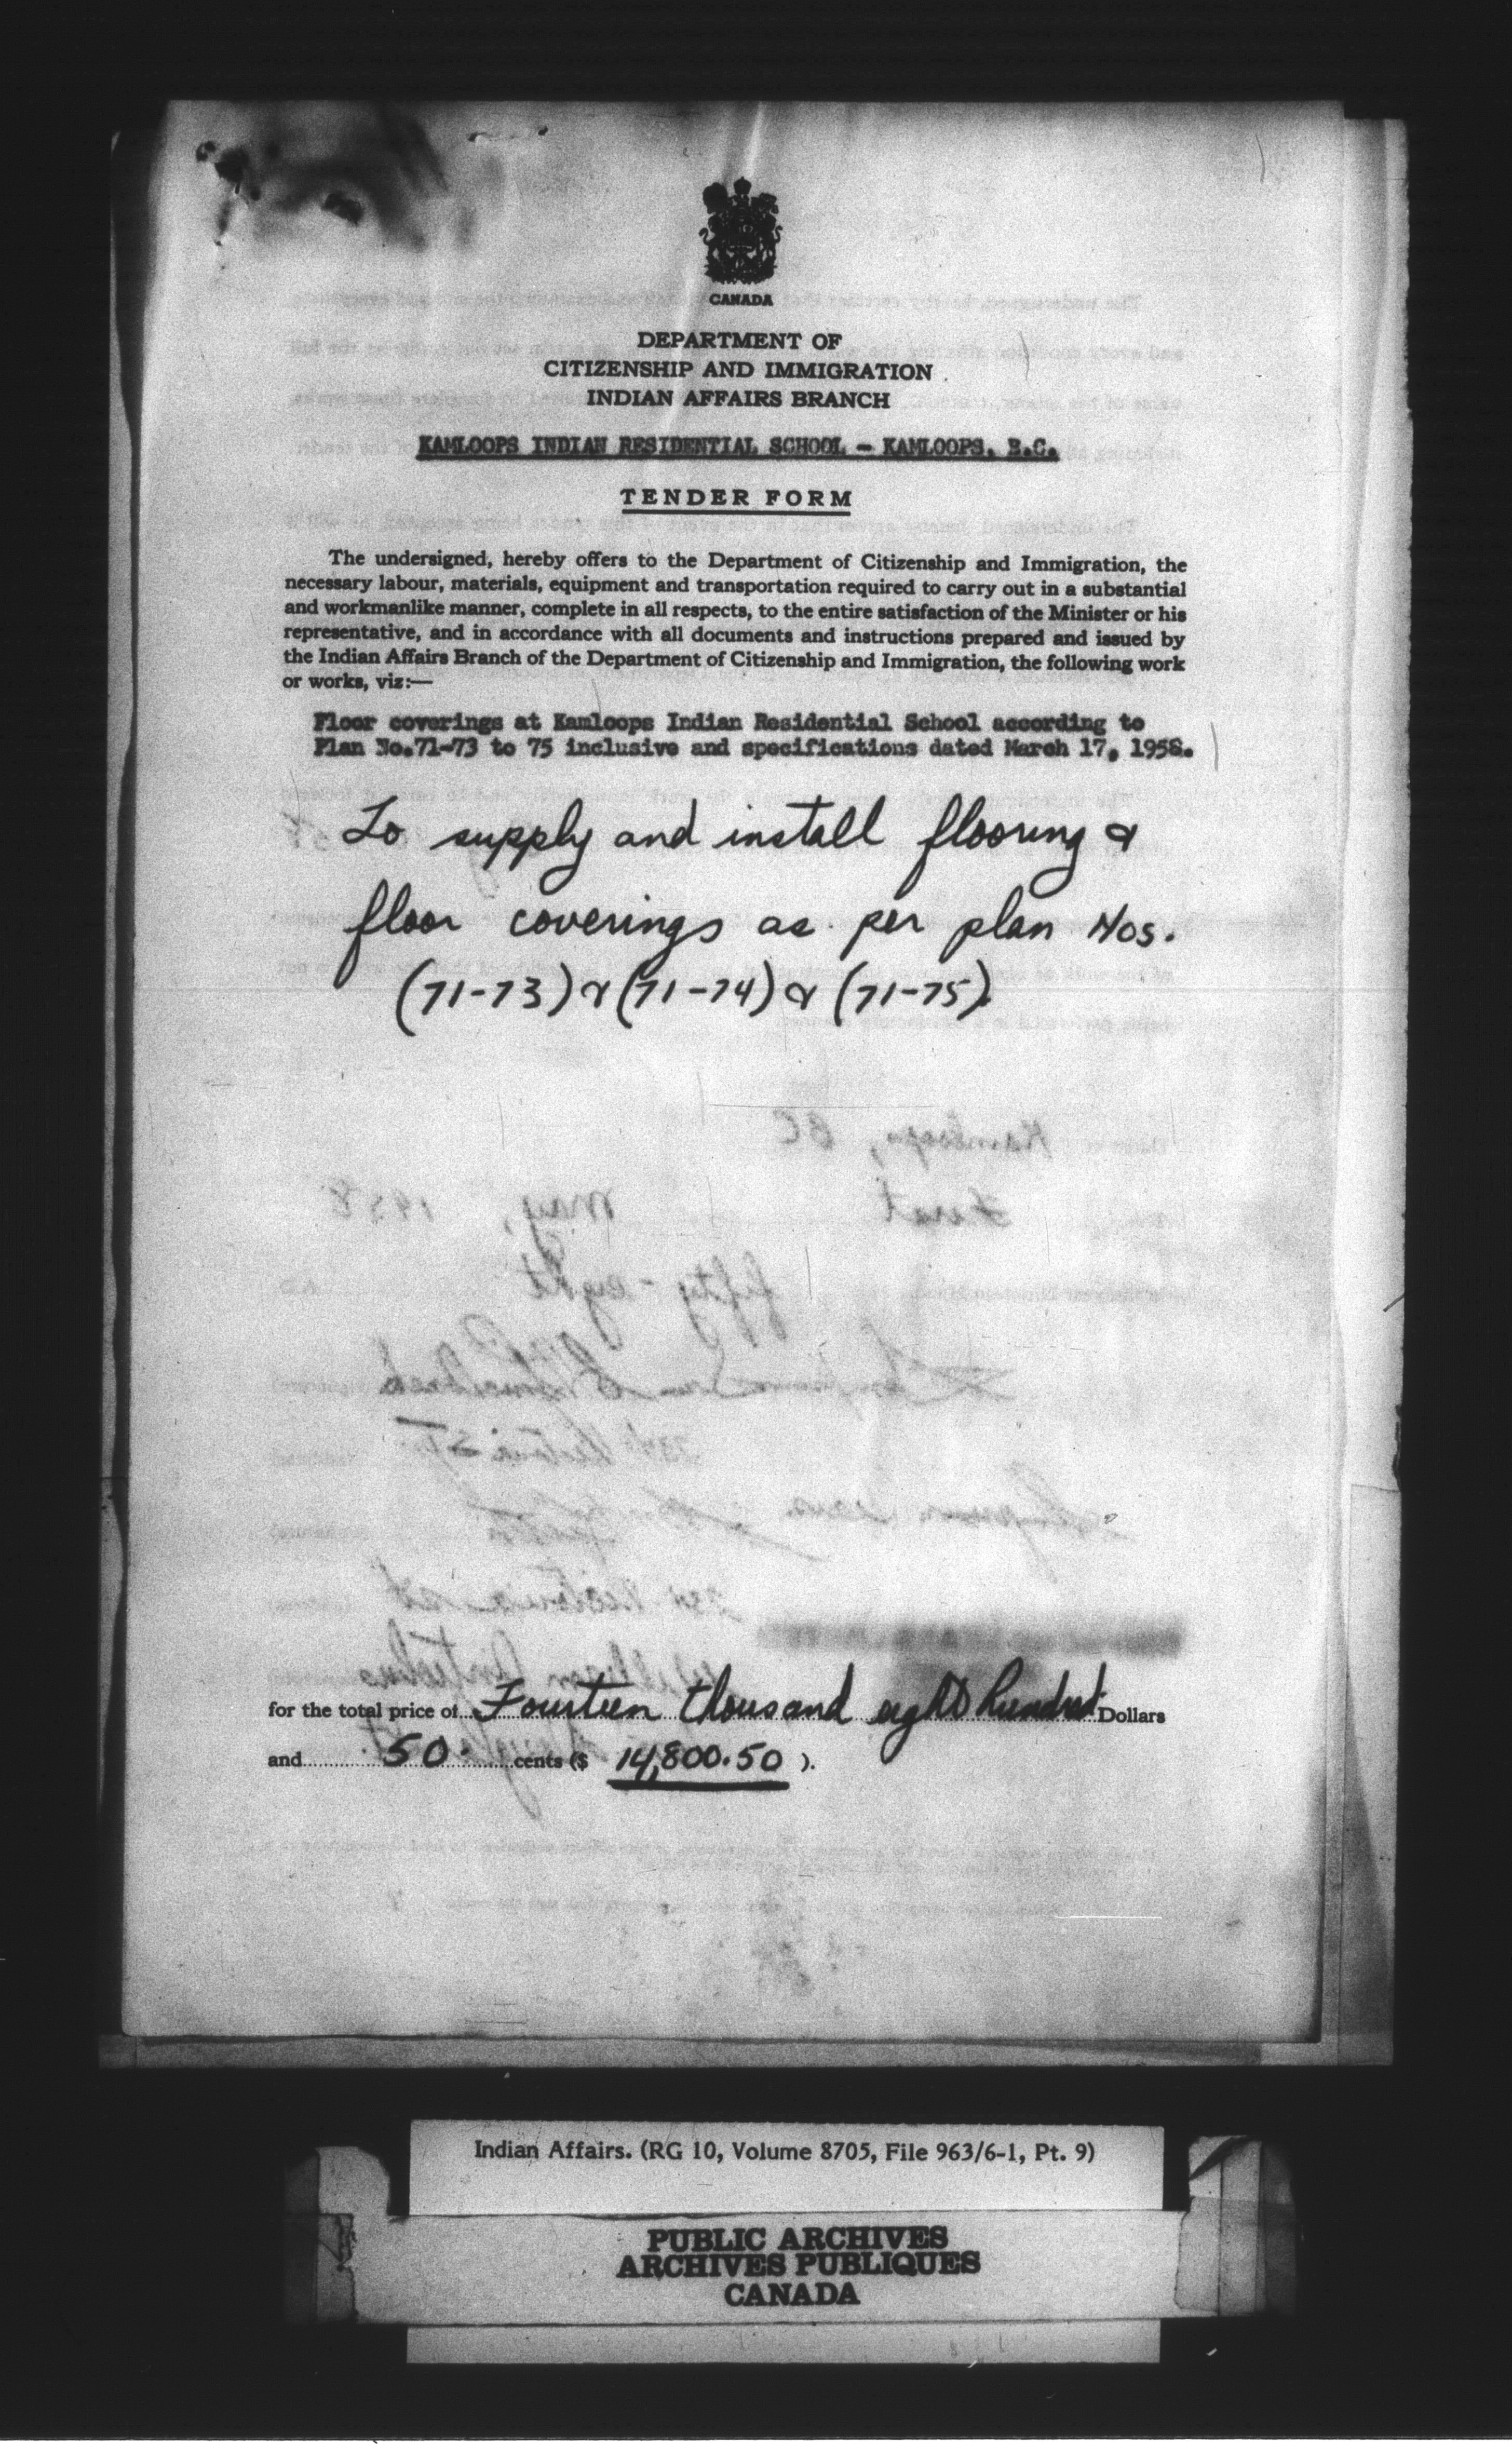 CANADA
DEPARTMENT OF
CITIZENSHIP AND IMMIGRATION
INDIAN AFFAIRS BRANCH
KAMLOOPS INDIAN RESIDENTIAL SCHOOL - KAMLOOPS, B.C.
TENDER FORM
The undersigned, hereby offers to the Department of Citizenship and Immigration, the
necessary labour, materials, equipment and transportation required to carry out in a substantial
and workmanlike manner, complete in all respects, to the entire satisfaction of the Minister or his
representative, and in accordance with all documents and instructions prepared and issued by
the Indian Affairs Branch of the Department of Citizenship and Immigration, the following work
or works, viz:—
Floor coverings at Kamloops Indian Residential School according to
Plan No.71-73 to 75 inclusive and specifications dated March 17, 1958.
To supply and install flooring &
floor coverings as per plan Nos.
(71-73) & (71-74) & (71-75).
for the total price of Fourteen thousand eight hundred Dollars
and 50 cents ($ 14,800.50 ).
Indian Affairs. (RG 10, Volume 8705, File 963/6-1, Pt. 9)
PUBLIC ARCHIVES
ARCHIVES PUBLIQUES
CANADA